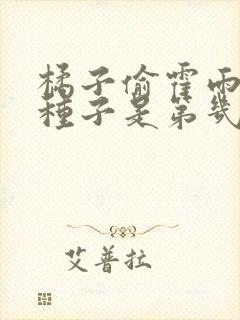 橘子偷霍雨
種子是第幾
艾普拉